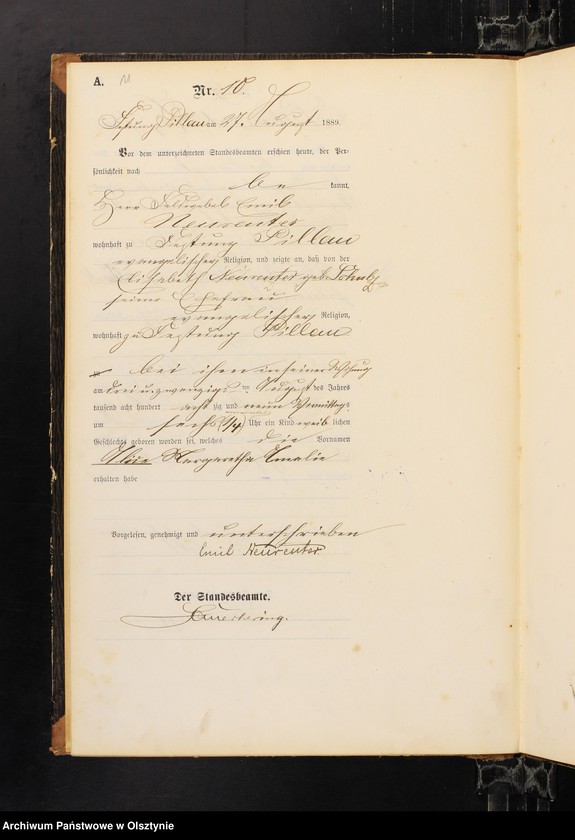 A.
Nr. 10.
Festung Pillau am 27. August 1889.
Vor dem unterzeichneten Standesbeamten erschien heute, der Per-
sönlichkeit nach
be kannt,
Herr Feldwebel Emil
Neureuter
wohnhaft zu Festung Pillau
evangelischer Religion, und zeigte an, daß von der
Elisabeth Neureuter geb. Schulz
seiner Ehefrau
evangelischer Religion,
wohnhaft zu Festung Pillau
bei ihm in seiner Wohnung
am drei u. zwanzigs ten August des Jahres
tausend acht hundert acht zig und neun Vormittags
um sechs (1/4) Uhr ein Kind weib lichen
Geschlechts geboren worden sei, welches die Vornamen
Margaretha Amalie
erhalten habe
Vorgelesen, genehmigt und unterschrieben
Emil Neureuter
Der Standesbeamte.
Archiwum Państwowe w Olsztynie